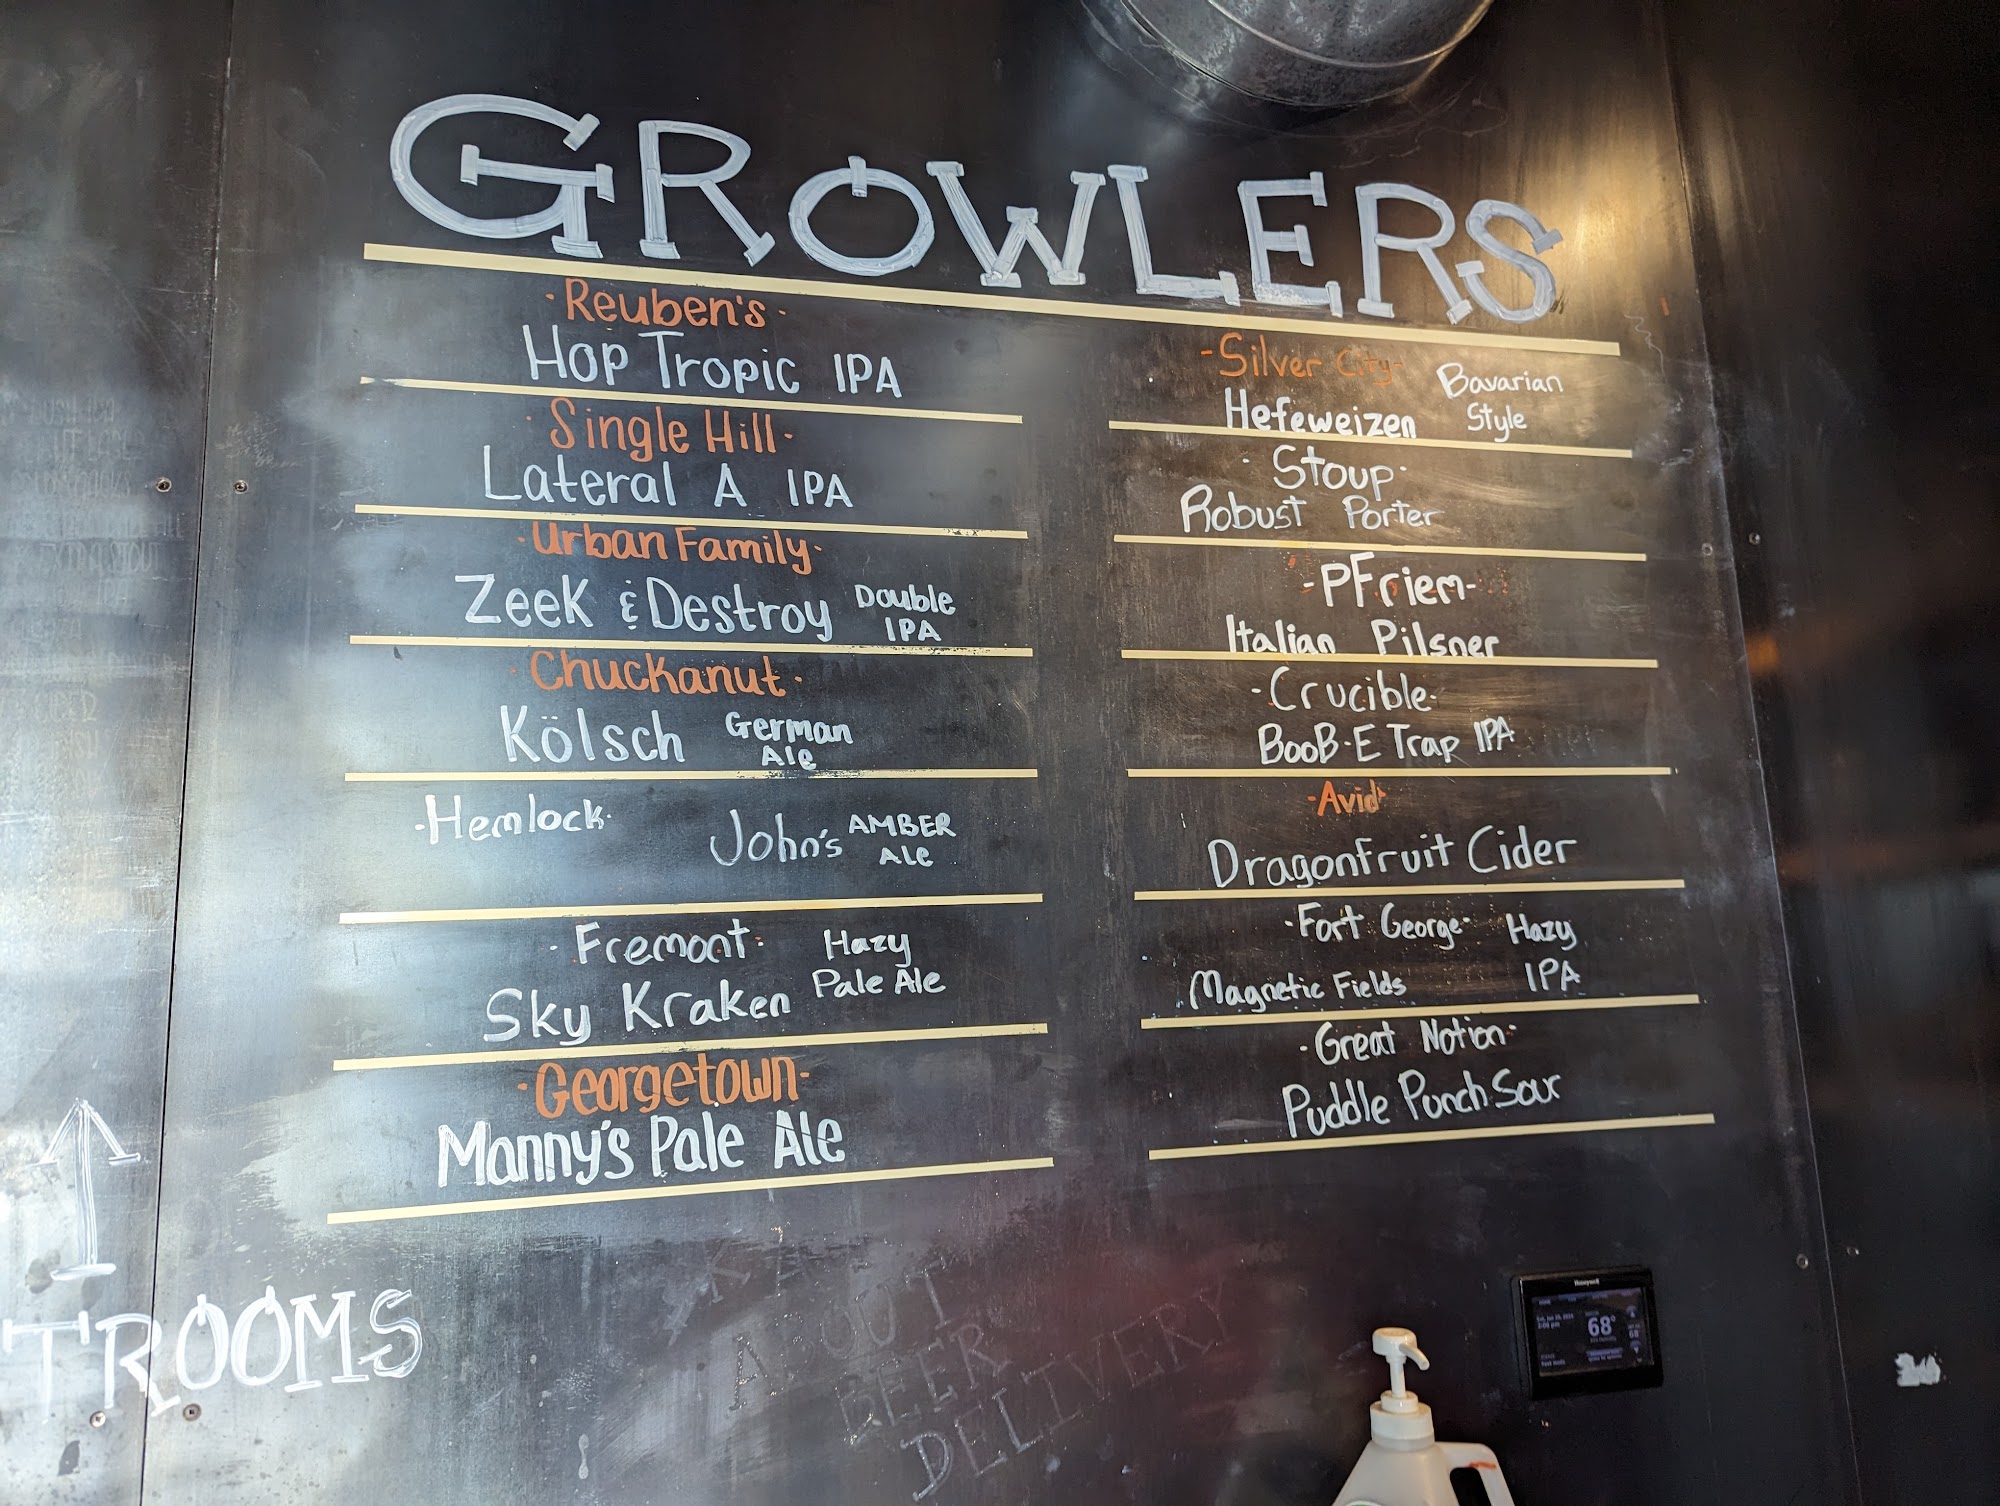 GROWLERS
·Reuben's·
Hop Tropic IPA
·Single Hill·
Lateral A IPA
·Urban Family·
Zeek & Destroy Double
IPA
·Chuckanut·
Kölsch German
Ale
·Hemlock·
John's AMBER
Ale
·Fremont· Hazy
Sky Kraken Pale Ale
·Georgetown·
Manny's Pale Ale
-Silver City- Bavarian
Hefeweizen Style
·Stoup·
Robust Porter
-PFriem-
Italian Pilsner
-Crucible-
BooB-E Trap IPA
·Avid·
Dragonfruit Cider
·Fort George· Hazy
Magnetic Fields IPA
·Great Notion·
Puddle Punch Sour
TROOMS
ABOUT
BEER
DELIVERY
Honeywell
68°